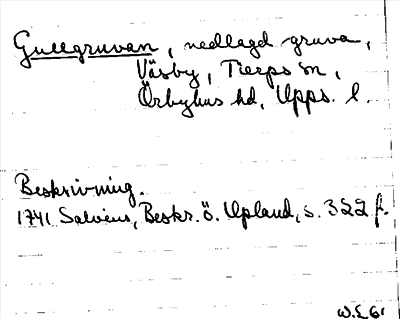 Gullgruvan, nedlagd gruva,
Väsby, Tierps sn,
Örbyhus hd, Upps. l.
Beskrivning.
1741 Salvius, Beskr. ö. Upland, s. 322 f.
W.E 61